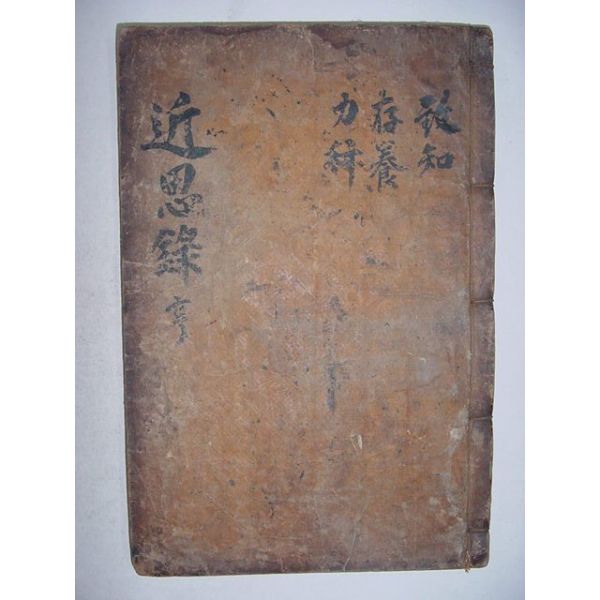 致知
存養
力行
近思錄 亨